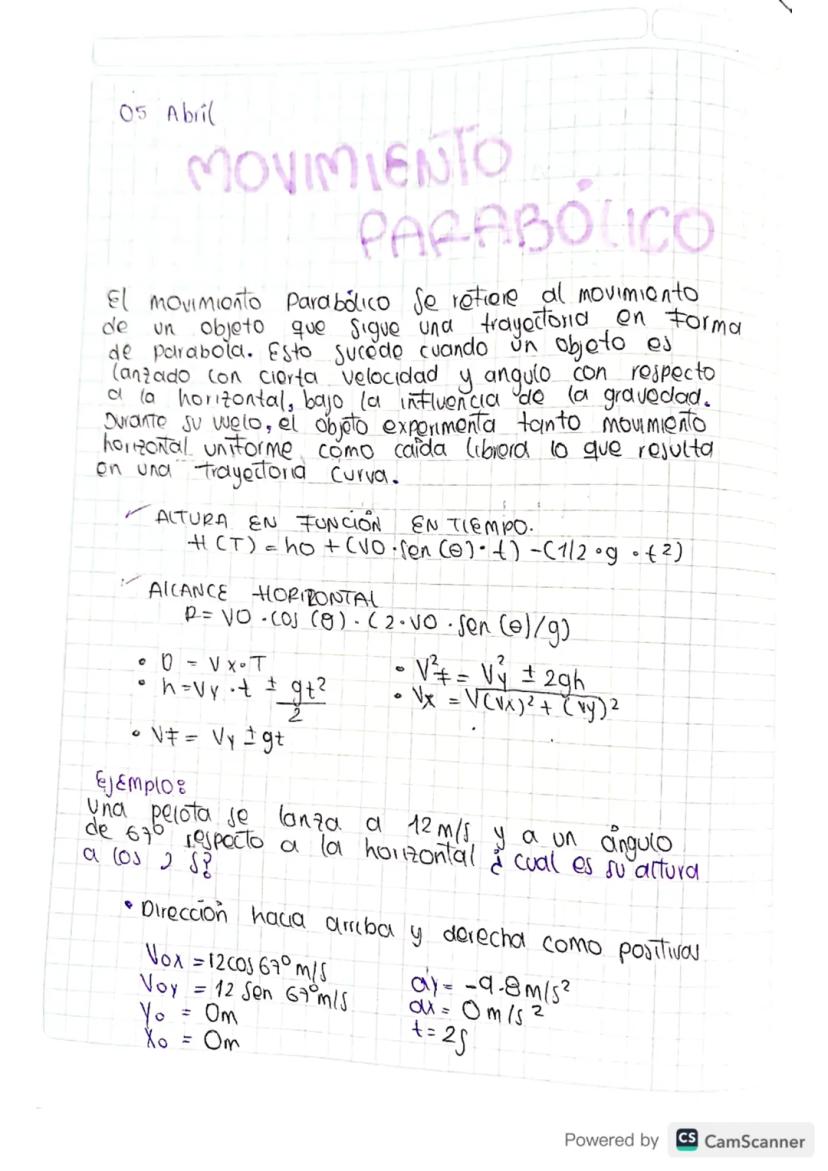 05 Abril
MOVIMIENTO
PARABÓLICO
El movimiento Parabólico se refiere al movimiento
de un objeto que sigue una trayectoria en forma
de parabola. Esto sucede cuando un objeto es
lanzado con cierta velocidad y angulo con respecto
a la horizontal, bajo la influencia de la gravedad.
Durante su vuelo, el objeto experimenta tanto movimiento
horizontal uniforme como caída librera lo que resulta
en una trayectoria curva.
ALTURA EN FUNCIÓN EN TIEMPO.
H(T) = ho + (VO · sen (θ) · t) - (1/2 · g · t²)
AlCANCE HORIZONTAL
R = VO · cos (θ) · (2 · VO · sen (θ)/g)
• D = Vx · T
• h = Vy · t ± gt²/2
• Vf = Vy ± gt
• V²f = V²y ± 2gh
• Vx = √(Vx)² + (Vy)²
Ejemplo:
Una pelota se lanza a 12 m/s y a un ángulo
de 67° respecto a la horizontal ¿ cual es su altura
a los 2 s?
• Dirección hacia arriba y derecha como positivas
Vox = 12 cos 67° m/s
Voy = 12 Sen 67° m/s
Yo = 0m
Xo = 0m
ay = -9.8 m/s²
ax = 0 m/s²
t = 2s
Powered by CS CamScanner